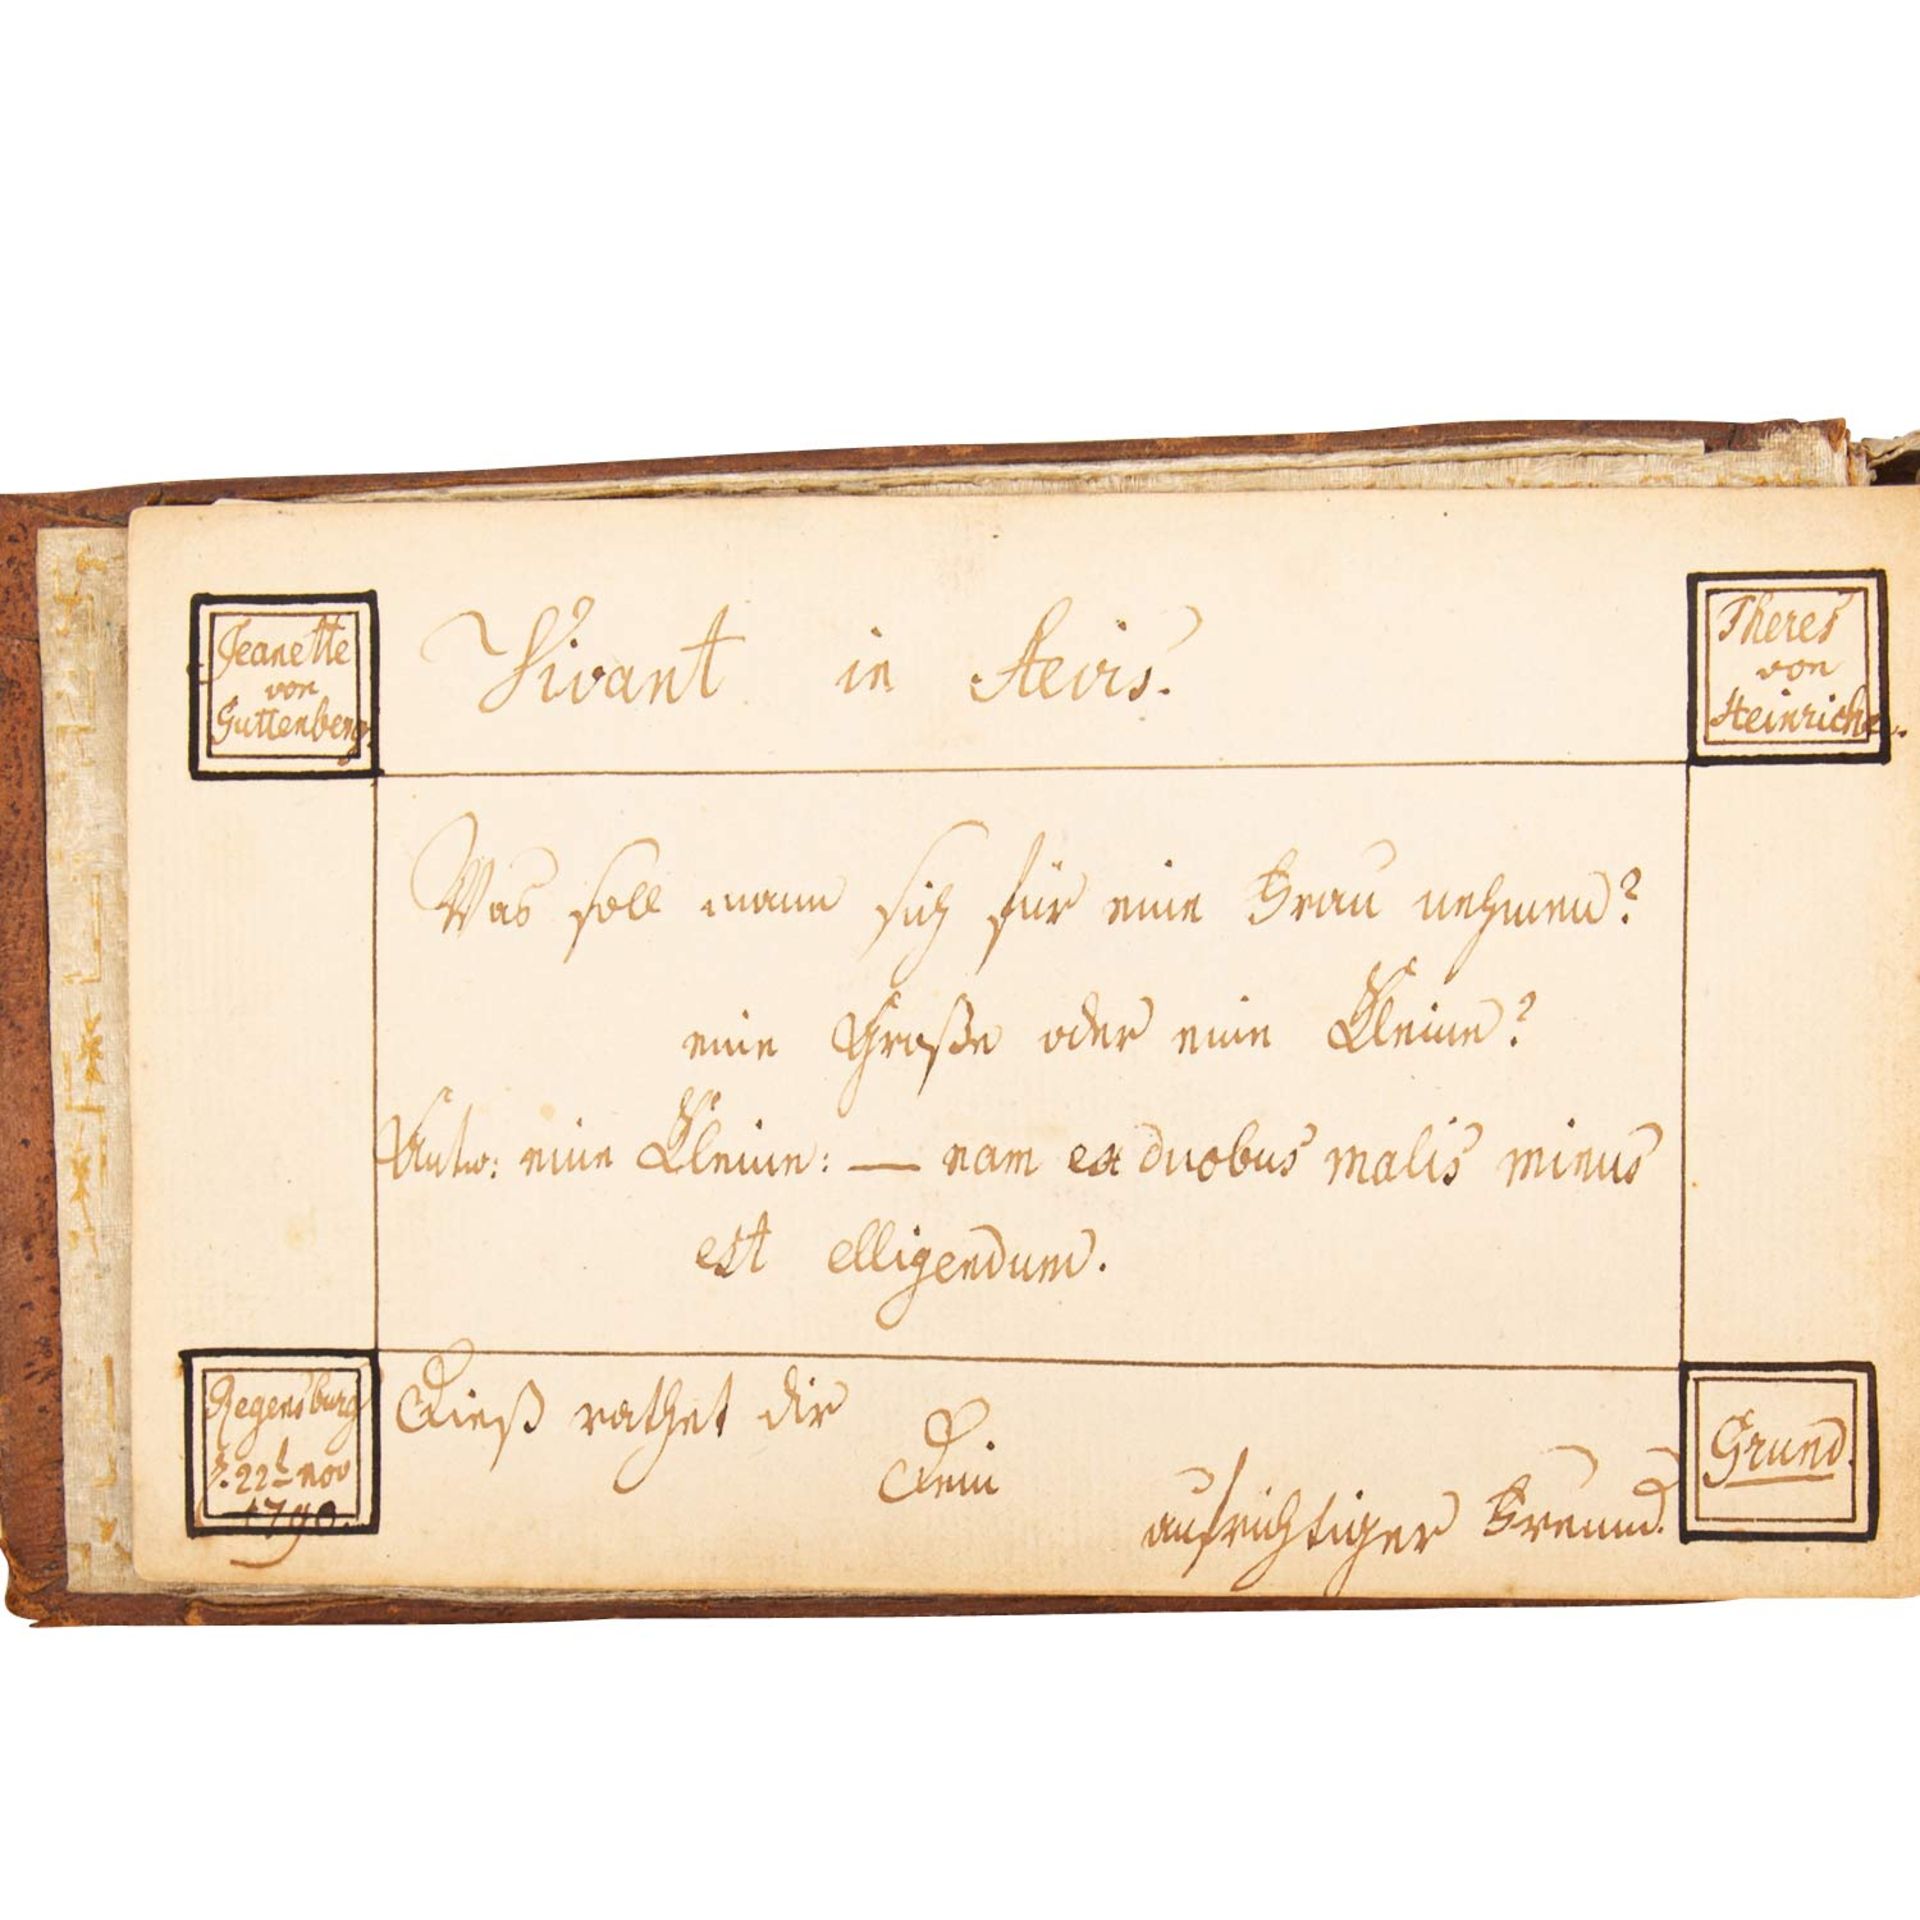 Jeanette
von
Guttenberg.
Vivant in Aevis.
Theres
von
Heinrichen.
Was soll mann sich für eine Frau nehmen?
eine Große oder eine Kleine?
Antw: eine Kleine: — nam ex duobus malis minus
est elligendum.
Regensburg
22t nov
1790.
Dieß rathet dir
Dein
aufrichtiger Freund.
Grund.